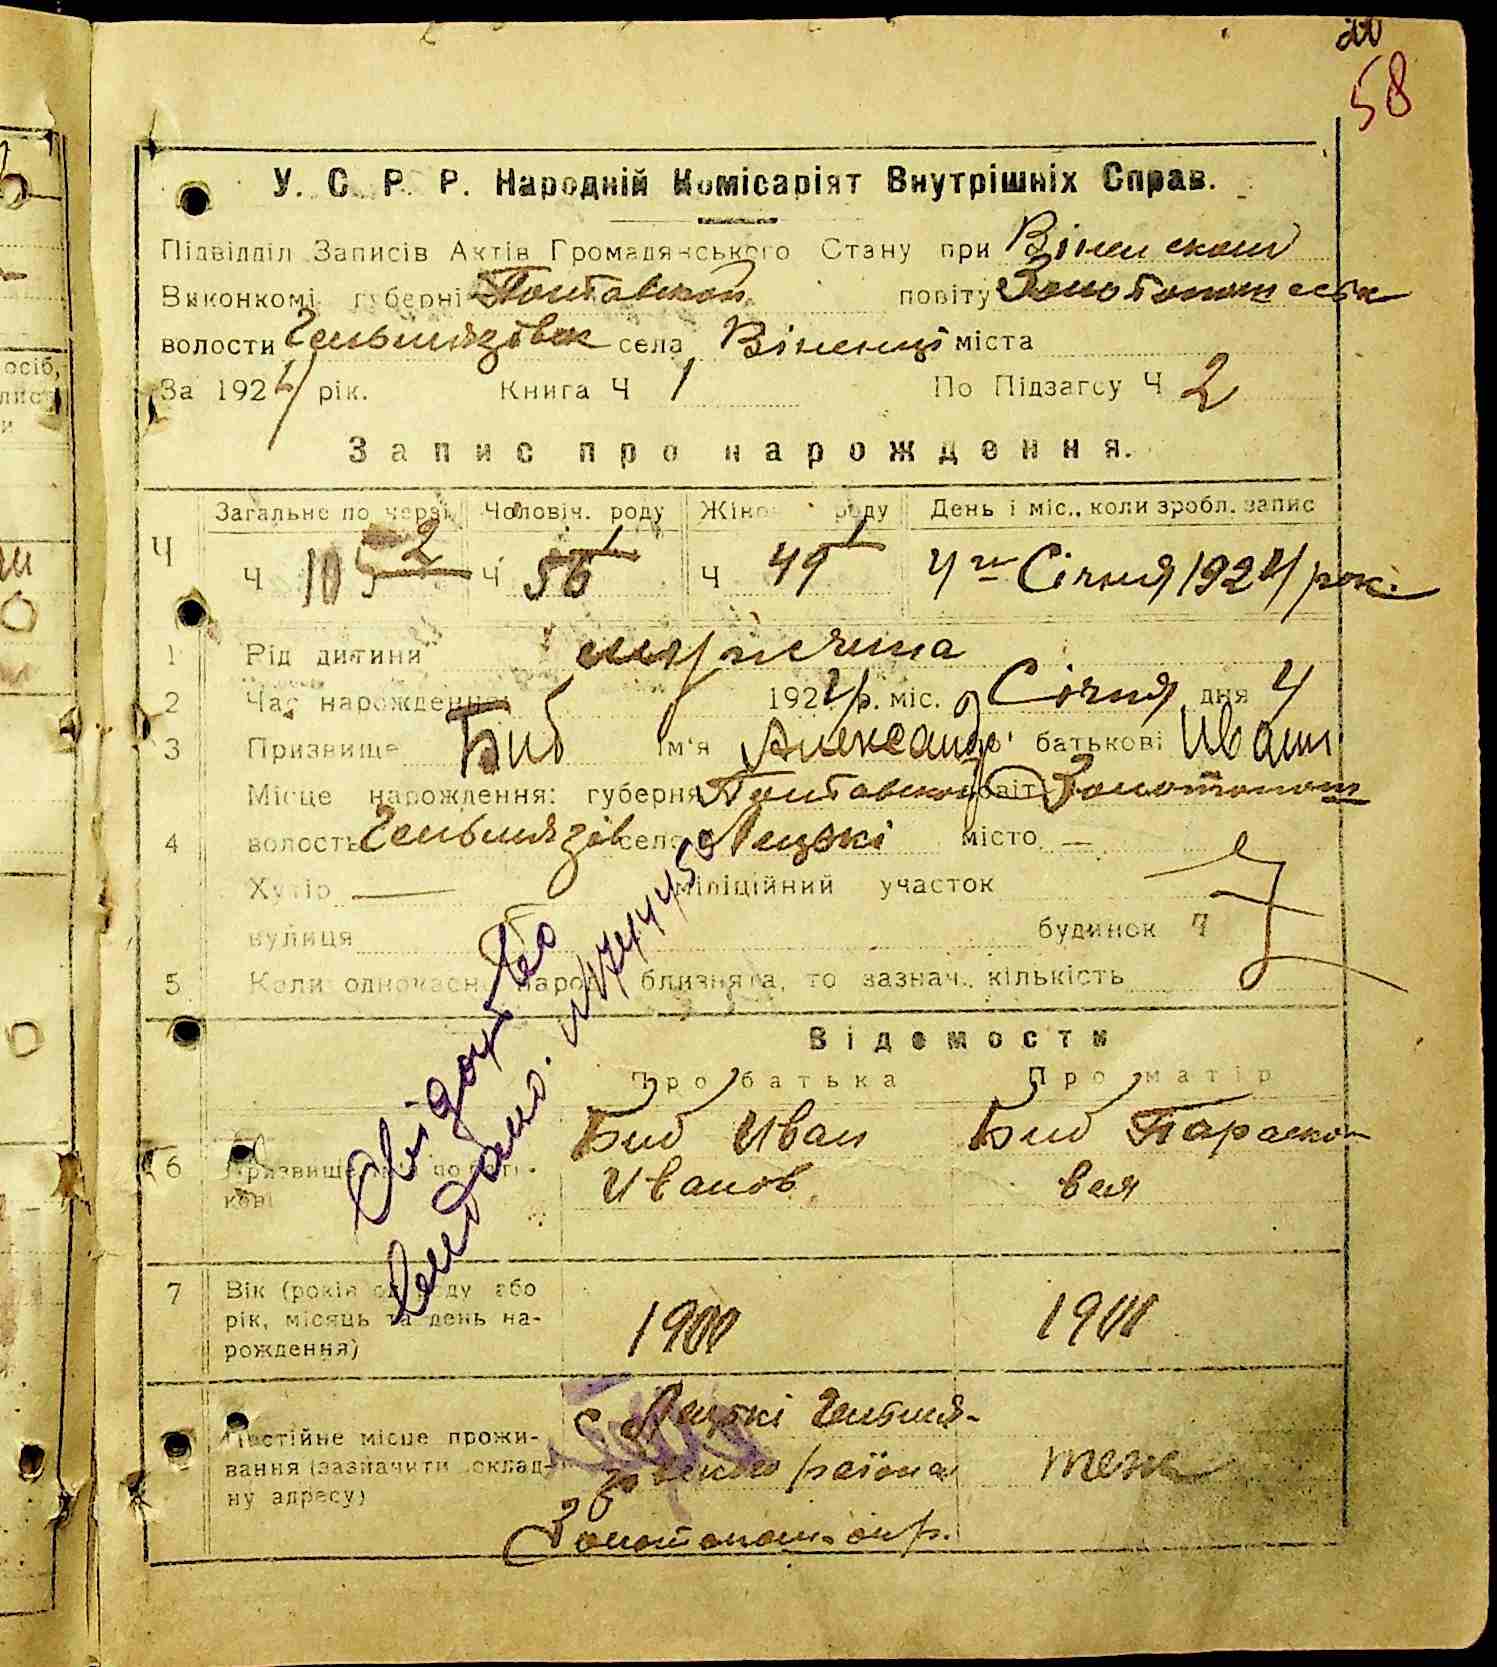 58
У. С. Р. Р. Народній Комісаріят Внутрішніх Справ.
Підвідділ Записів Актів Громадянського Стану при
Виконкомі губерні Полтавской повіту Золотоношськ
волости Гельмязівск села Віненці міста
За 1924 рік. Книга Ч 1 По Підзагсу Ч 2
Запис про нарождення.
Загальне по черзі Чоловіч. роду Жіноч. роду День і міс., коли зробл. запис
Ч Ч 105 2 Ч 56 1 Ч 49 1 4го Січня 1924 рок.
1 Рід дитини мужчина
2 Час нарождення: 1924 р. міс. Січня дня 4
3 Призвище Биб Ім'я Александр батькові Иван
Місце нарождення: губерня Полтавской повіт Золотонош
4 волость Гельмязів село Лецькі місто —
Хутір — міліційний участок
вулиця будинок 4
5 Коли одночасно народ. близнята, то зазнач. кількість
Свідоцтво
видано. 744450
Відомости
Про батька Про матір
6 Призвище по батькові Биб Иван Биб Параско-
Иванов вея
7 Вік (років од роду або рік, місяць та день нарождення) 1900 1900
Постійне місце прожи-
вання (зазначити доклад-
ну адресу)
С. Лецькі Гельмя-
зівского района теж
Золотонош. окр.